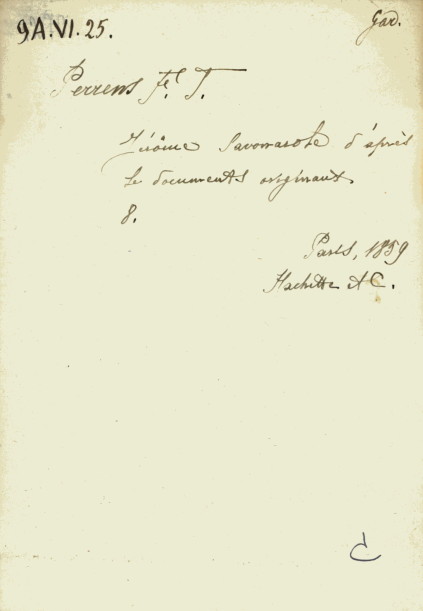 9A.VI.25.
Gad.
Perrens F. T.
Jérôme Savonarole d'après
le documents originaux
8.
Paris, 1859
Hachette et C.